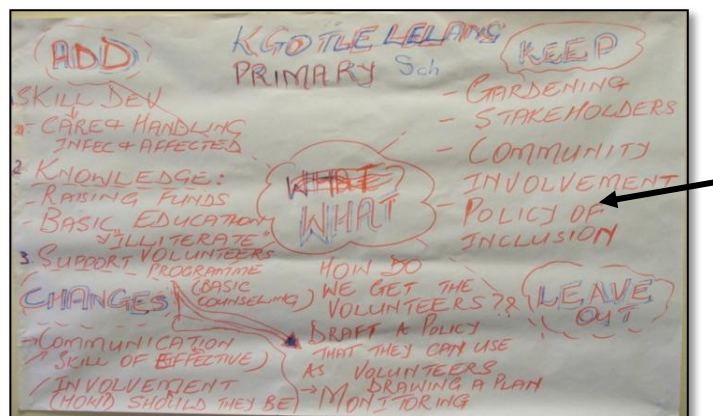 KGOTLELELANG
PRIMARY Sch
ADD
SKILL DEV
- CARE & HANDLING
INFEC & AFFECTED
2. KNOWLEDGE:
- RAISING FUNDS
- BASIC EDUCATION
"ILLITERATE"
3. SUPPORT VOLUNTEERS
PROGRAMME
(BASIC
COUNSELING)
CHANGES
COMMUNICATION
SKILL OF EFFECTIVE)
INVOLVEMENT
(HOW) SHOULD THEY BE)
WHAT
WHAT
KEEP
- GARDENING
- STAKEHOLDERS
- COMMUNITY
INVOLVEMENT
- POLICY OF
INCLUSION
HOW DO
WE GET THE
VOLUNTEERS??
DRAFT A POLICY
THAT THEY CAN USE
AS VOLUNTEERS
→ DRAWING A PLAN
MONITORING
LEAVE
OUT